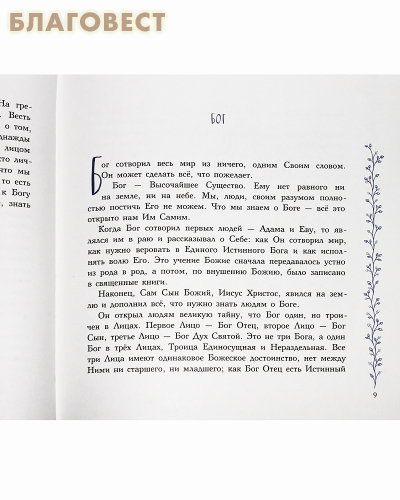 БЛАГОВЕСТ
На гре-
Весть
о том,
лицом
что мы
то есть
к Богу
знать
БОГ
Бог сотворил весь мир из ничего, одним Своим словом.
Он может сделать всё, что пожелает.
Бог — Высочайшее Существо. Ему нет равного ни
на земле, ни на небе. Мы, люди, своим разумом полно-
стью постичь Его не можем. Что мы знаем о Боге — всё это
открыто нам Им Самим.
Когда Бог сотворил первых людей — Адама и Еву, то яв-
лялся им в раю и рассказывал о Себе: как Он сотворил мир,
как нужно веровать в Единого Истинного Бога и как испол-
нять волю Его. Это учение Божие сначала передавалось устно
из рода в род, а потом, по внушению Божию, было записано
в священные книги.
Наконец, Сам Сын Божий, Иисус Христос, явился на зем-
лю и дополнил всё, что нужно знать людям о Боге.
Он открыл людям великую тайну, что Бог один, но трои-
чен в Лицах. Первое Лицо — Бог Отец, второе Лицо — Бог
Сын, третье Лицо — Бог Дух Святой. Это не три Бога, а один
Бог в трёх Лицах, Троица Единосущная и Нераздельная. Все
три Лица имеют одинаковое Божеское достоинство, нет между
Ними ни старшего, ни младшего; как Бог Отец есть Истинный
9